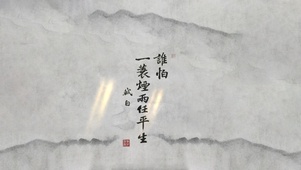 誰怕
一蓑煙雨任平生